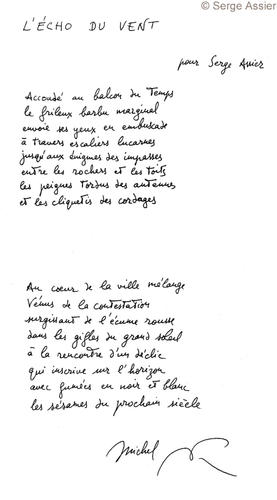 © Serge Assier
L'ÉCHO DU VENT
pour Serge Assier
Accoudé au balcon du Temps
le frileux barbu marginal
envoie ses yeux en embuscade
à travers escaliers lucarnes
jusqu'aux énigmes des impasses
entre les rochers et les toits
les peignes tordus des antennes
et les cliquetis des cordages
Au coeur de la ville mélange
Vénus de la contestation
surgissant de l'écume rousse
dans les gifles du grand soleil
à la rencontre d'un déclic
qui inscrive sur l'horizon
avec fumées en noir et blanc
les sésames du prochain siècle
Michel